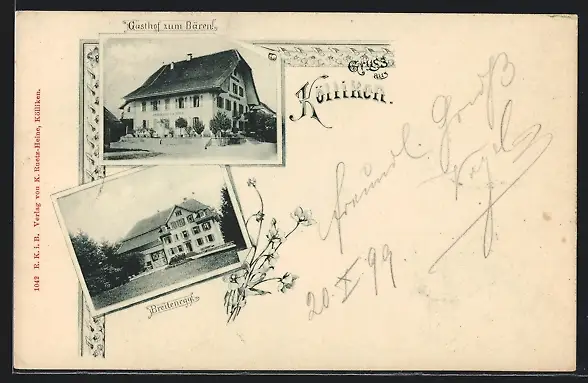 Gasthof zum Bären
Gruss
aus
Kölliken.
Breitenegg
freundl. Gruß
Vogel
20. X. 99
1042 R. K. i. B. Verlag von K. Ruetz-Heine, Kölliken.